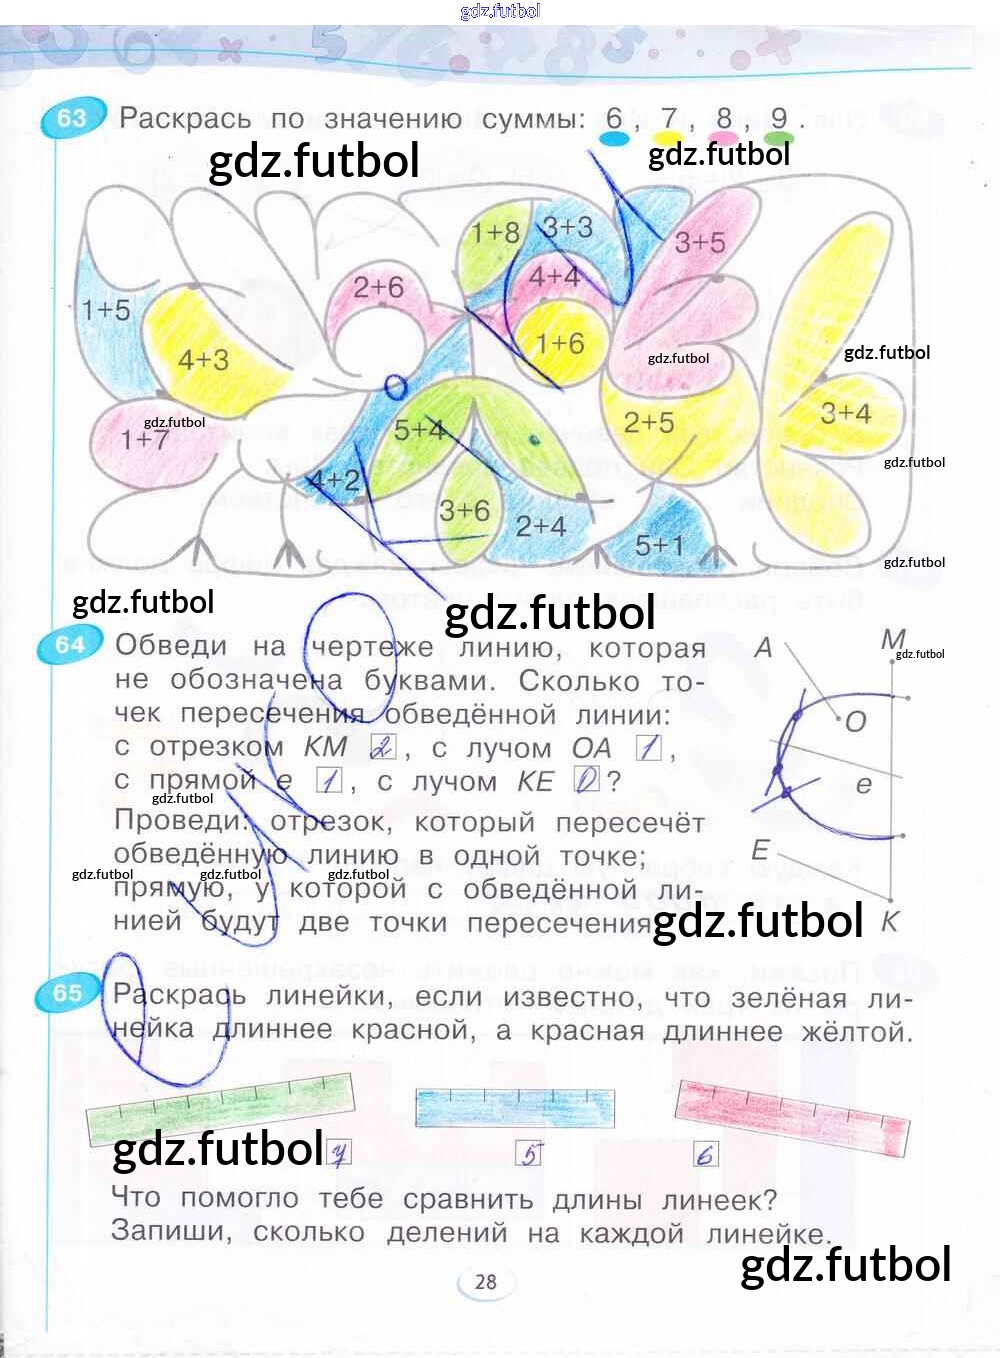 gdz.futbol
63 Раскрась по значению суммы: 6, 7, 8, 9.
gdz.futbol gdz.futbol
1+8 3+3 3+5
2+6 4+4
1+5
4+3 1+6
gdz.futbol gdz.futbol
1+7 gdz.futbol 5+4 2+5 3+4
gdz.futbol
4+2
3+6 2+4 5+1
gdz.futbol
gdz.futbol gdz.futbol
64 Обведи на чертеже линию, которая
не обозначена буквами. Сколько то-
чек пересечения обведённой линии:
с отрезком КМ 2, с лучом ОА 1,
с прямой е 1, с лучом КЕ 0?
gdz.futbol
Проведи: отрезок, который пересечёт
обведённую линию в одной точке;
gdz.futbol gdz.futbol gdz.futbol
прямую, у которой с обведённой ли-
нией будут две точки пересечения.
gdz.futbol
A M
gdz.futbol
O
e
E
K
65 Раскрась линейки, если известно, что зелёная ли-
нейка длиннее красной, а красная длиннее жёлтой.
gdz.futbol 7 5 6
Что помогло тебе сравнить длины линеек?
Запиши, сколько делений на каждой линейке.
gdz.futbol
28